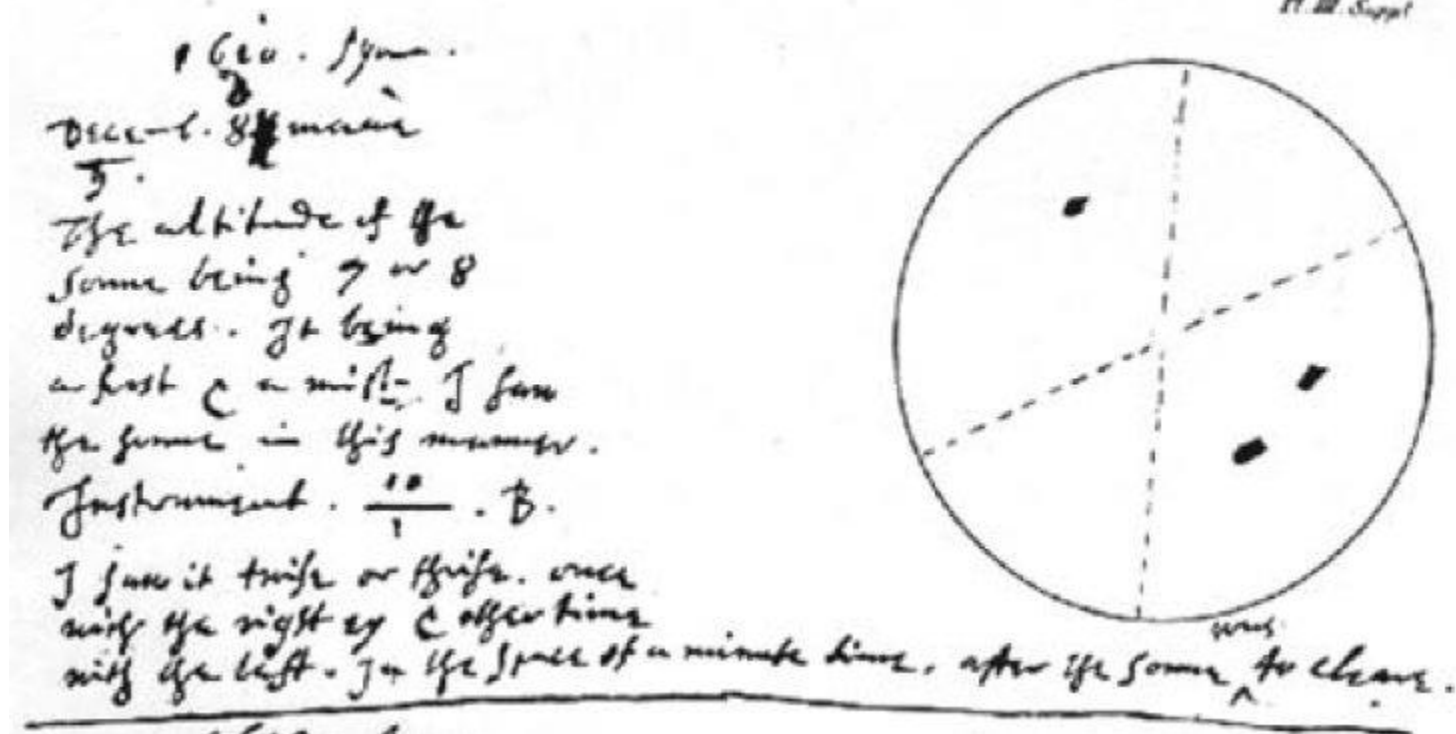 H. M. Suppl
1610. Syon.
♄
Decemb. 8 mane
♄.
The altitude of the
sonne being 7 or 8
degrees. It being
a frost & a mist. I saw
the sonne in this manner.
Instrument. 10/1 . B.
I saw it twise or thrise. once
with the right ey & other time
with the left. In the space of a minute time, after the sonne was to cleare.